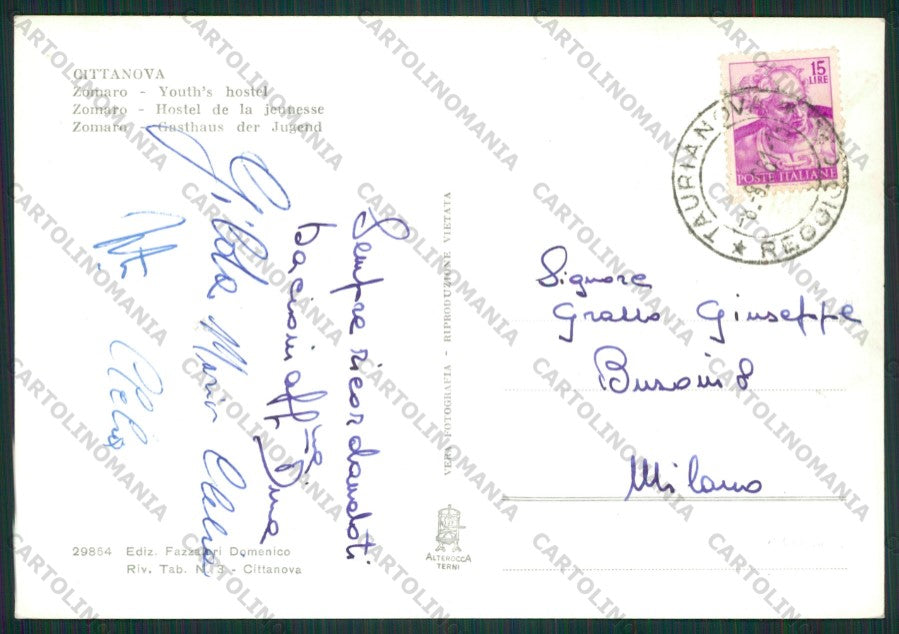 CITTANOVA
Zomaro - Youth's hostel
Zomaro - Hostel de la jeunesse
Zomaro - Gasthaus der Jugend
15
LIRE
POSTE ITALIANE
TAURIANOVA
REGGIO
Sempre ricordandoti
bacioni aff.
Dina
Gilda Maria Clelia
Clelia
Signore
Grasso Giuseppe
Busoni 8
Milano
VERA FOTOGRAFIA - RIPRODUZIONE VIETATA
29864 Ediz. Fazzolari Domenico
Riv. Tab. N. 3 - Cittanova
ALTEROCCA
TERNI
CARTOLINOMANIA